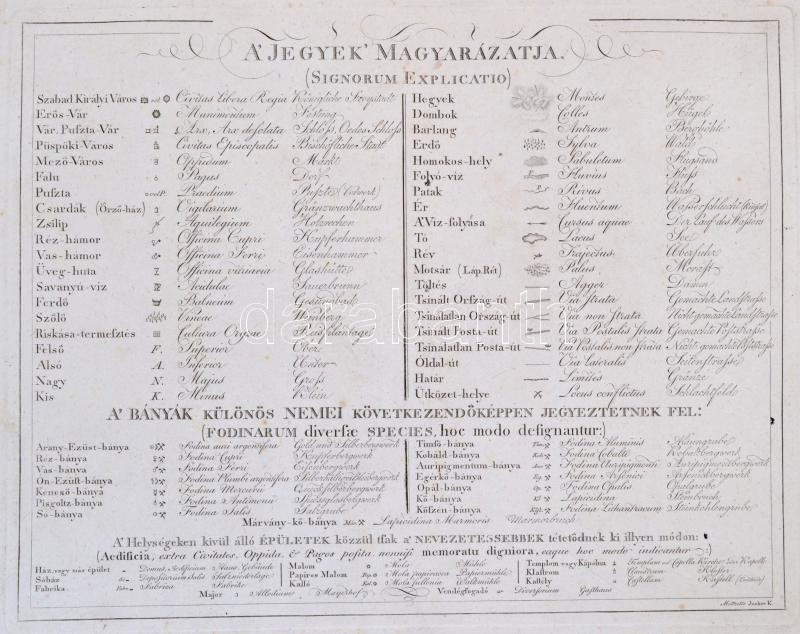 A' JEGYEK' MAGYARÁZATJA.
(SIGNORUM EXPLICATIO)
Szabad Királyi Város Civitas Libera Regia Königliche Freystadt
Erős-Vár Munimentum Festung
Vár. Puszta-Vár Arx. Arx desolata Schloss, Oedes Schloss
Püspöki-Város Civitas Episcopalis Bischöfliche Stadt
Mező-Város Oppidum Markt
Falu Pagus Dorf
Puszta Praedium
Csardák (Örző-ház) Vigilarium Gränzwachthaus
Zsilip Aquilegium Holzrechen
Réz-hámor Officina Cupri Kupferhammer
Vas-hámor Officina Ferri Eisenhammer
Üveg-huta Officina vitriaria Glashütte
Savanyú-víz Acidulae Sauerbrunn
Ferdő Balneum Gesundbad
Szőlő Vineae Weinberg
Riskása-termesztés Cultura Oryzae Reisplantage
Felső F. Superior Ober
Alsó A. Inferior Unter
Nagy N. Majus Gross
Kis K. Minus Klein
Hegyek Montes Gebirge
Dombok Colles Hügel
Barlang Antrum Berghöhle
Erdő Sylva Wald
Homokos-hely Sabuletum Flugsand
Folyó-víz Fluvius Fluss
Patak Rivus Bach
Ér Fluentum
A' Víz-folyása Cursus aquae Der Lauf des Wassers
Tó Lacus See
Rév Trajectus Überfuhr
Motsár (Láp. Rét) Palus Morast
Töltés Agger Damm
Tsinált Ország-út Via strata Gemachte Landstrasse
Tsinálatlan Ország-út Via non strata Nicht gemachte Landstrasse
Tsinált Posta-út Via Postalis strata Gemachte Poststrasse
Tsinálatlan Posta-út Via Postalis non strata Nicht gemachte Poststrasse
Óldal-út Via lateralis Seitenstrasse
Határ Limites Gränze
Ütközet-helye Locus conflictus Schlachtfeld
A' BÁNYÁK KÜLÖNÖS NEMEI KÖVETKEZENDŐKÉPPEN JEGYEZTETNEK FEL:
(FODINARUM diversæ SPECIES, hoc modo designantur:)
Arany-Ezüst-bánya Fodina auri argentifera Gold und Silberbergwerk
Réz-bánya Fodina Cupri Kupferbergwerk
Vas-bánya Fodina Ferri Eisenbergwerk
Ón-Ezüst-bánya Fodina Plumbi argentifera
Kéneső-bánya Fodina Mercurii Quecksilberbergwerk
Pisgoltz-bánya Fodina Antimonii Spiessglasbergwerk
Só-bánya Fodina Salis Salzgrube
Timsó-bánya Fodina Aluminis Alaungrube
Kobáld-bánya Fodina Cobalti Kobaltbergwerk
Auripigmentum-bánya Fodina Auripigmenti Auripigmentbergwerk
Egérkő-bánya Fodina Arsenici Arsenikgrube
Opál-bánya Fodina Opalis Opalgrube
Kő-bánya Lapicidina Steinbruch
Kőszén-bánya Fodina Lithantracum Steinkohlengrube
Márvány-kő-bánya Lapicidina Marmoris Marmorbruch
A' Helységeken kivül álló ÉPÜLETEK közzül tsak a' NEVEZETESSEBBEK tétetődnek ki illyen módon:
(Aedificia, extra Civitates, Oppida, & Pagos posita, nonnisi memoratu digniora, eaque hoc modo indicantur:)
Ház, vagy más épület Domus, Aedificium Haus, Gebäude
Sóház Depositorium Salis Salzniederlage
Fabrika Fabrica Fabrik
Malom Mola Mühle
Papiros Malom Mola papyracea Papiermühle
Kalló Mola fullonia Walkmühle
Templom vagy Kápolna Templum vel Capella Kirche oder Kapelle
Klastrom Claustrum Kloster
Kastély Castellum Kastell
Major Allodium Mayerhof Vendégfogadó Diversorium Gasthaus
Junker K.
darabanth